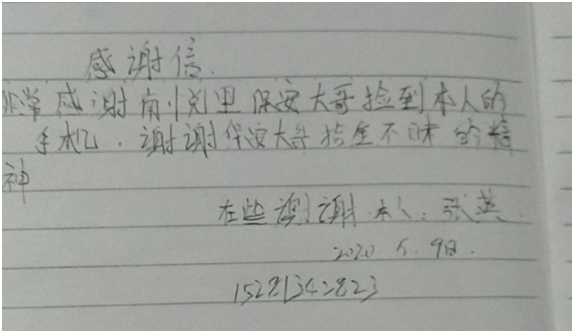 感谢信.
非常感谢南小悦里保安大哥捡到本人的
手机.谢谢保安大哥拾金不昧的精
神
在些谢谢.本人:张英.
2020.5.9日.
15281342823